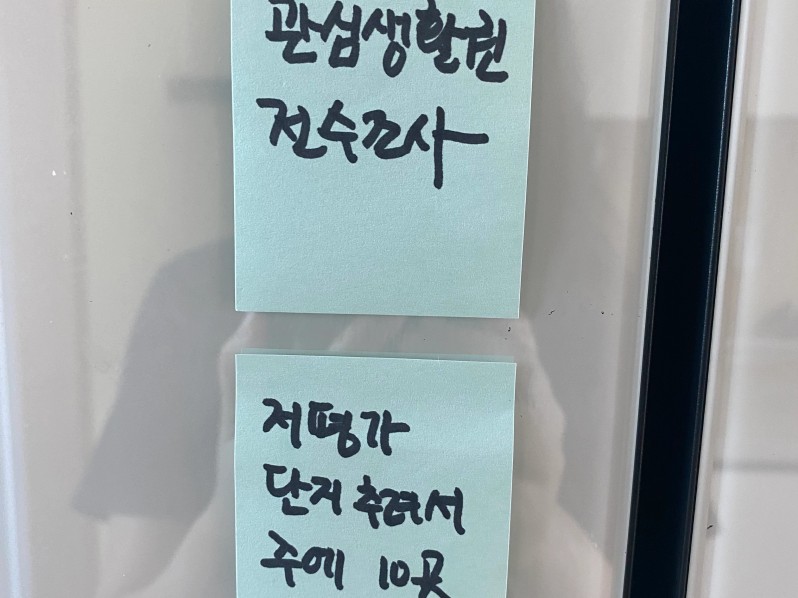 관심생활권
전수조사
저평가
단지 추려서
주에 10곳